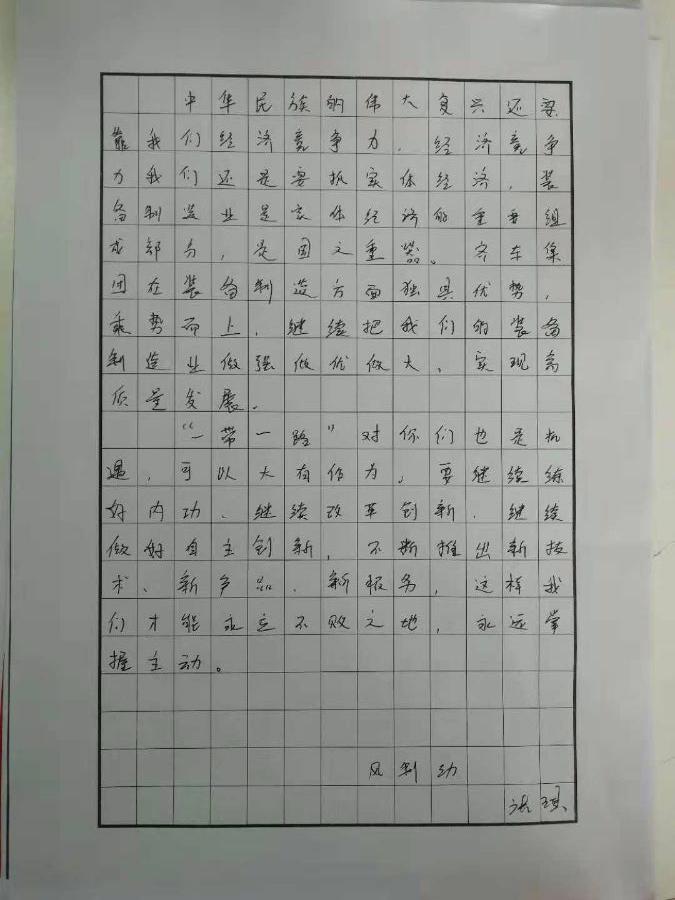 中华民族的伟大复兴还要
靠我们经济竞争力，经济竞争
力我们还是要抓实体经济，装
备制造业是实体经济的重要组
成部分，是国之重器。客车集
团在装备制造方面独具优势，
乘势而上，继续把我们的装备
制造业做强做优做大，实现高
质量发展。
“一带一路”对你们也是机
遇，可以大有作为，要继续练
好内功、继续改革创新、继续
做好自主创新，不断推出新技
术、新产品、新服务，这样我
们才能永立不败之地，永远掌
握主动。
风制动
张琪